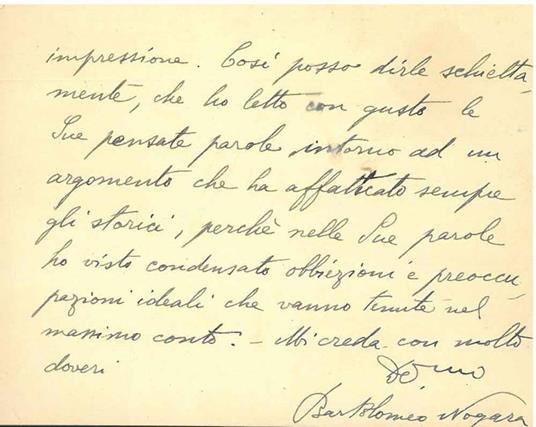 impressione. Così posso dirle schietta-
mente, che ho letto con gusto le
Sue pensate parole intorno ad un
argomento che ha affaticato sempre
gli storici, perchè nelle Sue parole
ho visto condensato obbiezioni e preoccu-
pazioni ideali che vanno tenute nel
massimo conto. - Mi creda con molto
doveri
Dev.mo
Bartolomeo Nogara